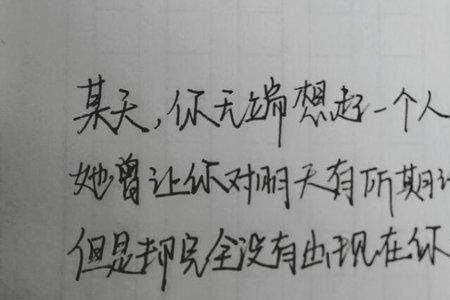 某天,你无端想起一个人
她曾让你对明天有所期
但是却完全没有出现在你